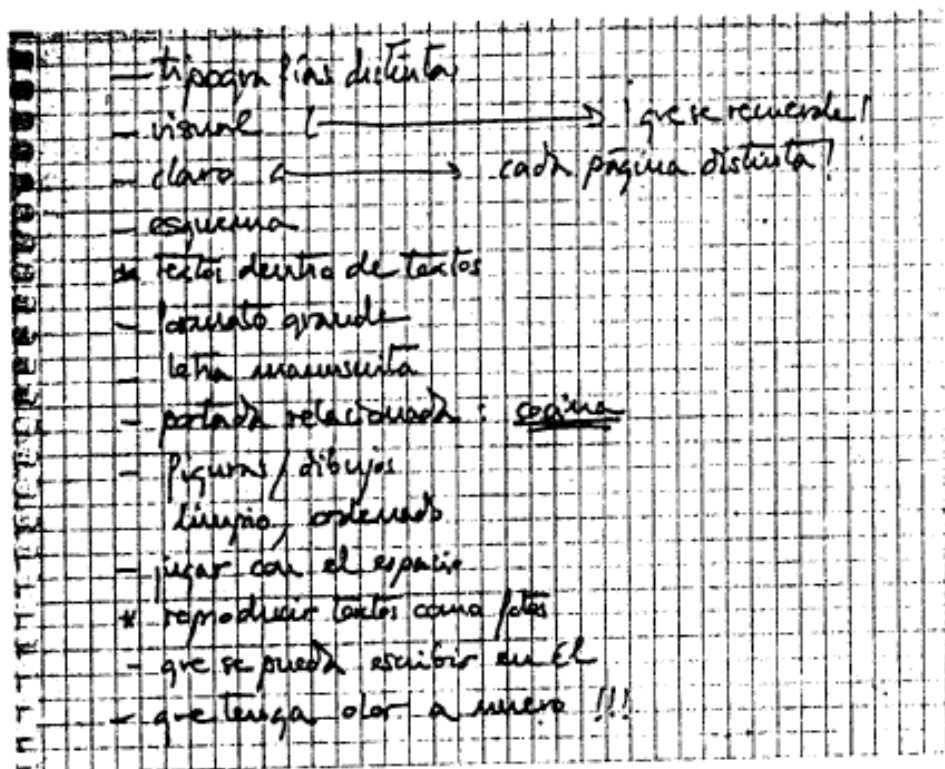 — tipografías distintas
— visual (⟶ ¡que se recuerde!
— claro ⟶ cada página distinta!
— esquema
* textos dentro de textos
— formato grande
— letra manuscrita
— portada relacionada: cocina
— figuras/dibujos
limpio, ordenado
— jugar con el espacio
* reproducir textos como fotos
— que se pueda escribir en él
— que tenga olor a nuevo !!!